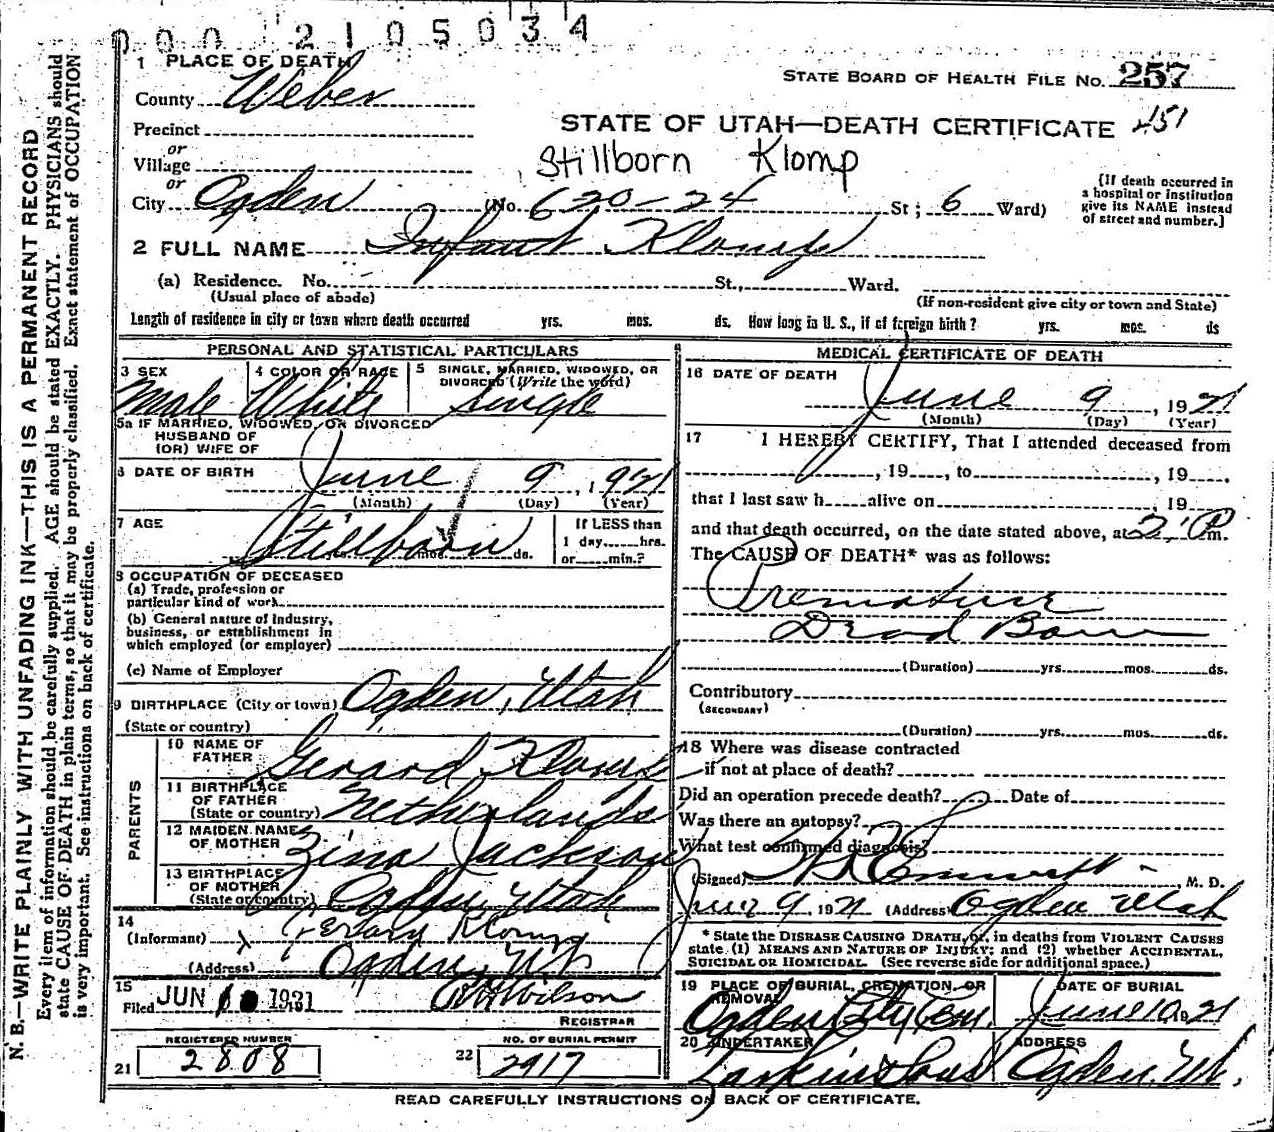 000 2105034
1 PLACE OF DEATH
STATE BOARD OF HEALTH FILE NO. 257
County Weber
STATE OF UTAH—DEATH CERTIFICATE 451
Precinct
or
Village
Stillborn Klomp
or
City Ogden (No. 620-24 St; 6 Ward)
[If death occurred in
a hospital or institution
give its NAME instead
of street and number.]
2 FULL NAME Infant Klomp
(a) Residence. No. St., Ward.
(Usual place of abode)
(If non-resident give city or town and State)
Length of residence in city or town where death occurred yrs. mos. ds. How long in U. S., if of foreign birth? yrs. mos. ds
PERSONAL AND STATISTICAL PARTICULARS
3 SEX
Male
4 COLOR OR RACE
White
5 SINGLE, MARRIED, WIDOWED, OR
DIVORCED (Write the word)
Single
5a IF MARRIED, WIDOWED, OR DIVORCED
HUSBAND OF
(OR) WIFE OF
6 DATE OF BIRTH June 9, 1921
(Month) (Day) (Year)
7 AGE
Stillborn
mos. ds.
If LESS than
1 day, hrs.
or min.?
8 OCCUPATION OF DECEASED
(a) Trade, profession or
particular kind of work
(b) General nature of industry,
business, or establishment in
which employed (or employer)
(c) Name of Employer
9 BIRTHPLACE (City or town) Ogden, Utah
(State or country)
PARENTS
10 NAME OF
FATHER Gerard Klomp
11 BIRTHPLACE
OF FATHER
(State or country) Netherlands
12 MAIDEN NAME
OF MOTHER Zina Jackson
13 BIRTHPLACE
OF MOTHER
(State or country) Ogden, Utah
14
(Informant) Gerard Klomp
(Address) Ogden, Ut
15
Filed JUN 10 1921 Wilson
REGISTRAR
REGISTERED NUMBER
21 2808
NO. OF BURIAL PERMIT
22 2917
MEDICAL CERTIFICATE OF DEATH
16 DATE OF DEATH
June 9, 1921
(Month) (Day) (Year)
17 I HEREBY CERTIFY, That I attended deceased from
, 19 , to , 19 .
that I last saw h alive on 19
and that death occurred, on the date stated above, at 2 P m.
The CAUSE OF DEATH* was as follows:
Premature
Dead Born
(Duration) yrs. mos. ds.
Contributory
(SECONDARY)
(Duration) yrs. mos. ds.
18 Where was disease contracted
if not at place of death?
Did an operation precede death? Date of
Was there an autopsy?
What test confirmed diagnosis?
(Signed) Emmett M. D.
June 9 1921 (Address) Ogden Utah
* State the DISEASE CAUSING DEATH, or, in deaths from VIOLENT CAUSES
state (1) MEANS AND NATURE OF INJURY; and (2) whether ACCIDENTAL,
SUICIDAL OR HOMICIDAL. (See reverse side for additional space.)
19 PLACE OF BURIAL, CREMATION, OR
REMOVAL
Ogden City Cem.
DATE OF BURIAL
June 10, 1921
20 UNDERTAKER
Larkin & Sons
ADDRESS
Ogden, Ut.
READ CAREFULLY INSTRUCTIONS ON BACK OF CERTIFICATE.
N. B.—WRITE PLAINLY WITH UNFADING INK—THIS IS A PERMANENT RECORD
Every item of information should be carefully supplied. AGE should be stated EXACTLY. PHYSICIANS should
state CAUSE OF DEATH in plain terms, so that it may be properly classified. Exact statement of OCCUPATION
is very important. See instructions on back of certificate.